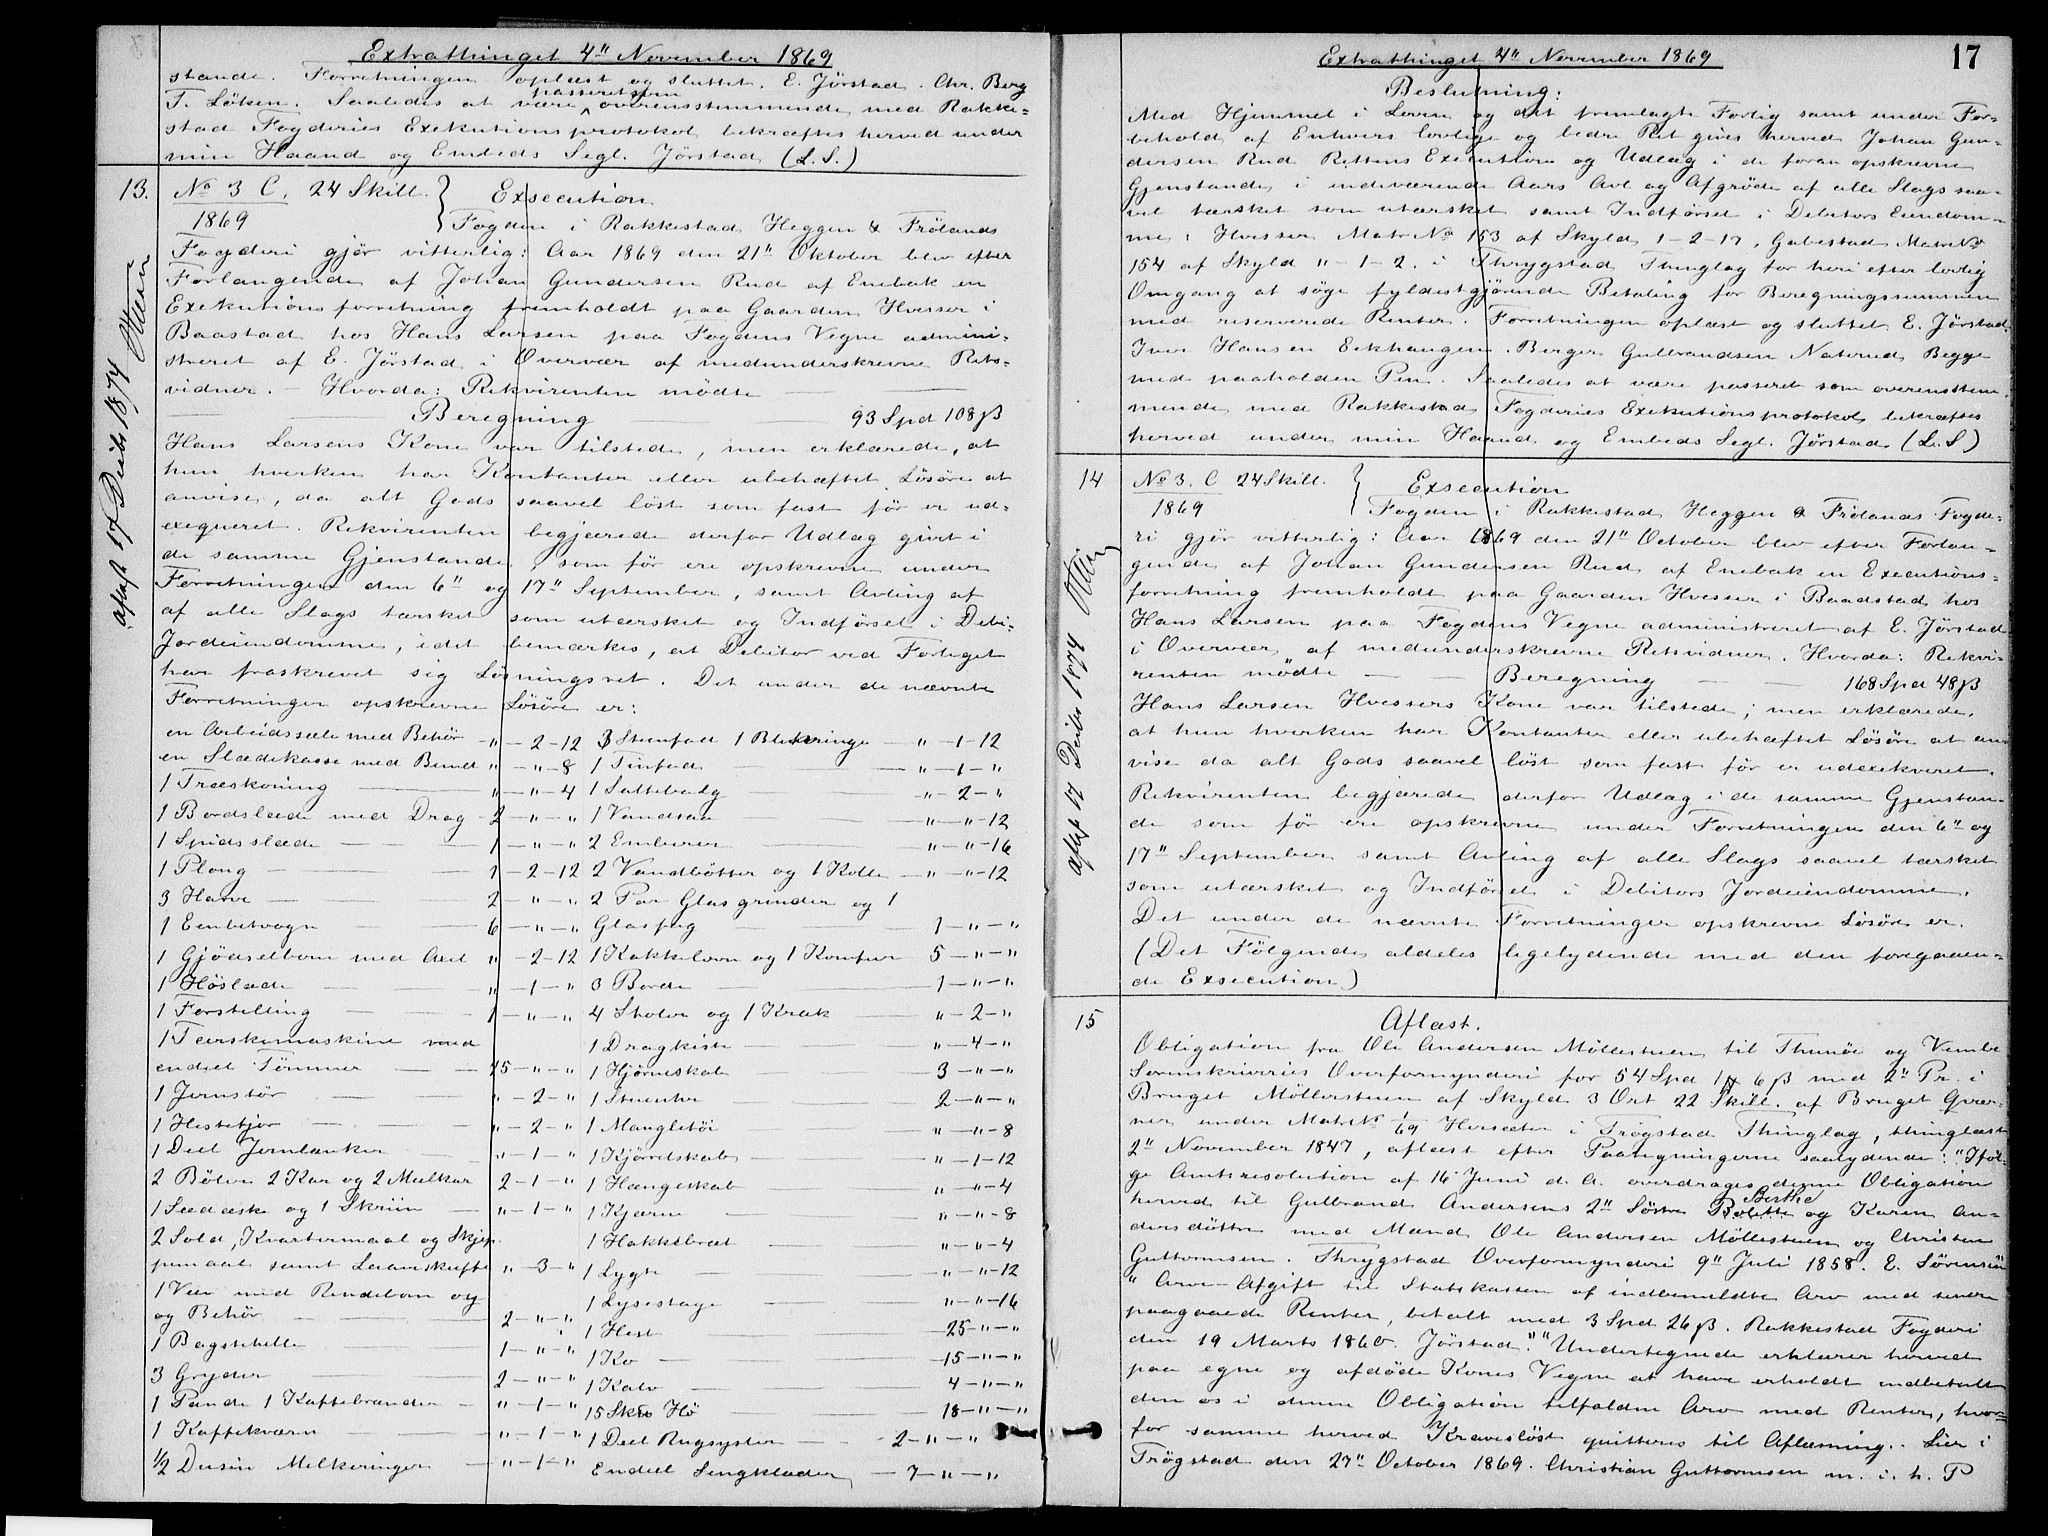 Extrathinget 4" November 1869
stande. Forretningen oplæst og sluttet. E. Jörstad. Chr. Berg
T. Löken. Saaledes at være passeret som overensstemmende med Rakke-
stad Fogderies Exekutionsprotokol bekræftes herved under
min Haand og Embeds Segl. Jörstad (L. S.)
13. No 3 C. 24 Skill. Exsecution
1869 Fogden i Rakkestad Heggen & Frölands
Fogderi gjör vitterlig: Aar 1869 den 21" Oktober blev efter
Forlangende af Johan Gundersen Rud af Enebak en
Exekutionsforretning fremholdt paa Gaarden Hvesser i
Baastad hos Hans Larsen paa Fogdens Vegne admini-
streret af E. Jörstad i Overvær af medunderskrevne Rets-
vidner. – Hvorda: Rekvirenten mödte
Beregning 93 Spd 108 ß
Hans Larsens Kone var tilstede, men erklærede, at
hun hverken har Kontanter eller ubehæftet Lösöre at
anvise, da alt Gods saavel löst som fast för er ud-
exegueret. Rekvirenten begjærede derfor Udlæg givet i
de samme Gjenstande, som för ere opskrevne under
Forretningen den 6" og 17" September, samt Avling af
af alle Slags tærsket som utærsket og Indförsel i Debi-
Jordeiendomme, idet bemærkes, at Debitor ved Forliget
har fraskrevet sig Lösningsret. Det under de nævnte
Forretninger opskrevne Lösöre er:
en Arbeidssæle med Behör " - 2 - 12
en Slædekasse med Bund " - " - 8
1 Træskoning " - " - 4
1 Bordslæde med Drag 2 - " - "
1 Spidsslæde 1 - " - "
1 Ploug 1 - 2 - 12
3 Harve 2 - " - "
1 Eenbetvogn 6 - " - "
1 Gjödselbom med Axel " - 2 - 12
1 Höslæde " - 1 - "
1 Forstilling 1 - " - "
1 Tærskemaskine med
endeel Tömmer 25 - " - "
1 Jernstör " - 2 - "
1 Hestetjor " - 2 - "
1 Deel Jernlænker " - 1 - "
2 Bölver 2 Kar og 2 Meelkar 2 - 1 - "
1 Sædæske og 1 Skriin " - 1 - "
2 Sold, Kvartermaal og Skjep-
pemaal samt Laaveskuffe " - 3 - "
1 Væv med Rendebom og
og Behör 2 - " - "
1 Bagstehelle 1 - " - "
3 Gryder 2 - " - "
1 Pande 1 Kaffebrænder " - 1 - "
1 Kaffekværn " - 1 - "
1/2 Dusin Melkeringer " - 1 - "
3 Steenfad 1 Blikringe " - 1 - 12
1 Tinfad " - 1 - "
1 Saltebalg " - 2 - "
1 Vandsaa " - " - 12
2 Emberer " - " - 16
2 Vandbötter og 1 Kolle " - " - 12
2 Par Glasgrinder og 1
Glasfag 1 - " - "
1 Kakkelovn og 1 Komfur 5 - " - "
3 Borde 1 - " - "
4 Stoler og 1 Krak " - 2 - "
1 Dragkiste " - 4 - "
1 Hjörneskab 3 - " - "
1 Stueuhr 2 - " - "
1 Mangletöi " - " - 8
1 Kjörrelskab " - 1 - 12
1 Hængeskab " - " - 4
1 Kjærne " - " - 8
1 Hakkebræt " - " - 4
1 Lygte " - " - 12
1 Lysestage " - " - 16
1 Hest 25 - " - "
1 Ko 15 - " - "
1 Kalv 4 - " - "
15 Hö 18 - " - "
1 Deel Rugsyster 2 - " - "
Endeel Sengklæder 7 - " - "
aflæst 17 Decbr 1874
Extrathinget 4" November 1869
17
Beslutning:
Med Hjemmel i Loven og det fremlagte Forlig samt under For-
behold af Enhvers lovlige og bedre Ret gives herved Johan Gun-
dersen Rud Rettens Execution og Udlæg i de foran opskrevne
Gjenstande, i indeværende Aars Avl og Afgröde af alle Slags saa-
vel tærsket som utærsket samt Indförsel i Debitors Eiendom-
me: Hvesser Matr No 153 af Skyld 1-2-17, Gabestad Matr No
154 af Skyld "-1-2. i Thrygstad Thinglag for heri efter lovlig
Omgang at söge fyldestgjörende Betaling for Beregningssummen
med reserverede Renter. Forretningen oplæst og sluttet E. Jörstad
Iver Hansen Eekhaugen. Berger Gulbrandsen Naterud Begge
med paaholden Pen. Saaledes at være passeret som overensstem-
mende med Rakkestad Fogderies Exekutionsprotokol bekræftes
herved under min Haand og Embeds Segl. Jörstad (L. S)
14 No 3. C 24 Skill. Exsecution
1869 Fogden i Rakkestad Heggen & Frölands Fogde-
ri gjör vitterlig: Aar 1869 den 21" October blev efter Forlan-
gende af Johan Gundersen Rud af Enebak en Executions-
forretning fremholdt paa Gaarden Hvesser i Baadstad hos
Hans Larsen paa Fogdens Vegne administreret af E. Jörstad
i Overvær af medunderskrevne Retsvidner. Hvorda: Rekvi-
renten mödte Beregning 168 Spd 48 ß
Hans Larsen Hvessers Kone var tilstede; men erklærede,
at hun hverken har Kontanter eller ubehæftet Lösöre at an-
vise da alt Gods saavel löst som fast för er udexekveret.
Rekvirenten begjærede derfor Udlæg i de samme Gjenstan-
de som för ere opskrevne under Forretningen den 6" og
17" September samt Avling af alle Slags saavel tærsket
som utærsket og Indförsel i Debitors Jordeiendomme.
Det under de nævnte Forretninger opskrevne Lösöre er.
(Det Fölgende aldeles ligelydende med den foregaaen-
de Exsecution)
aflæst 17 Decbr 1874
15 Aflæst.
Obligation fra Ole Andersen Möllestuen til Thunöe og Vembe
Sorenskriveries Overformynderi for 54 Spd 1 6 ß med 2" Pr. i
Bruget Möllestuen af Skyld 3 Ort 22 Skill. af Bruget Qvær-
ner under Matr No 1/69 Hersæter i Trögstad Thinglag, thinglæst
2" November 1847, aflæst efter Paategningerne saalydende: "Iföl-
ge Amtsresolution af 16 Juni d. A. overdrages denne Obligation
herved til Gulbrand Andersens 2" Söstre Bolette Berthe og Karen An-
dersdöttre med Mænd Ole Andersen Möllestuen og Christen
Guttormsen. Thrygstad Overformynderi 9" Juli 1858. E. Sörensen
" Arve-Afgift til Statskassen af indbemeldte Arv med senere
paagaaede Renter, betalt med 3 Spd 26 ß. Rakkestad Fogderi
den 19 Marts 1860. Jörstad." "Undertegnede erklærer herved
paa egne og afdöde Kones Vegne at have erholdt indbetalt
den os i denne Obligation tilfaldne Arv med Renter, hvor-
for samme herved Kraveslöst quitteres til Aflæsning. Lier i
Trögstad den 27" October 1869. Christian Guttormsen m. i. h. P